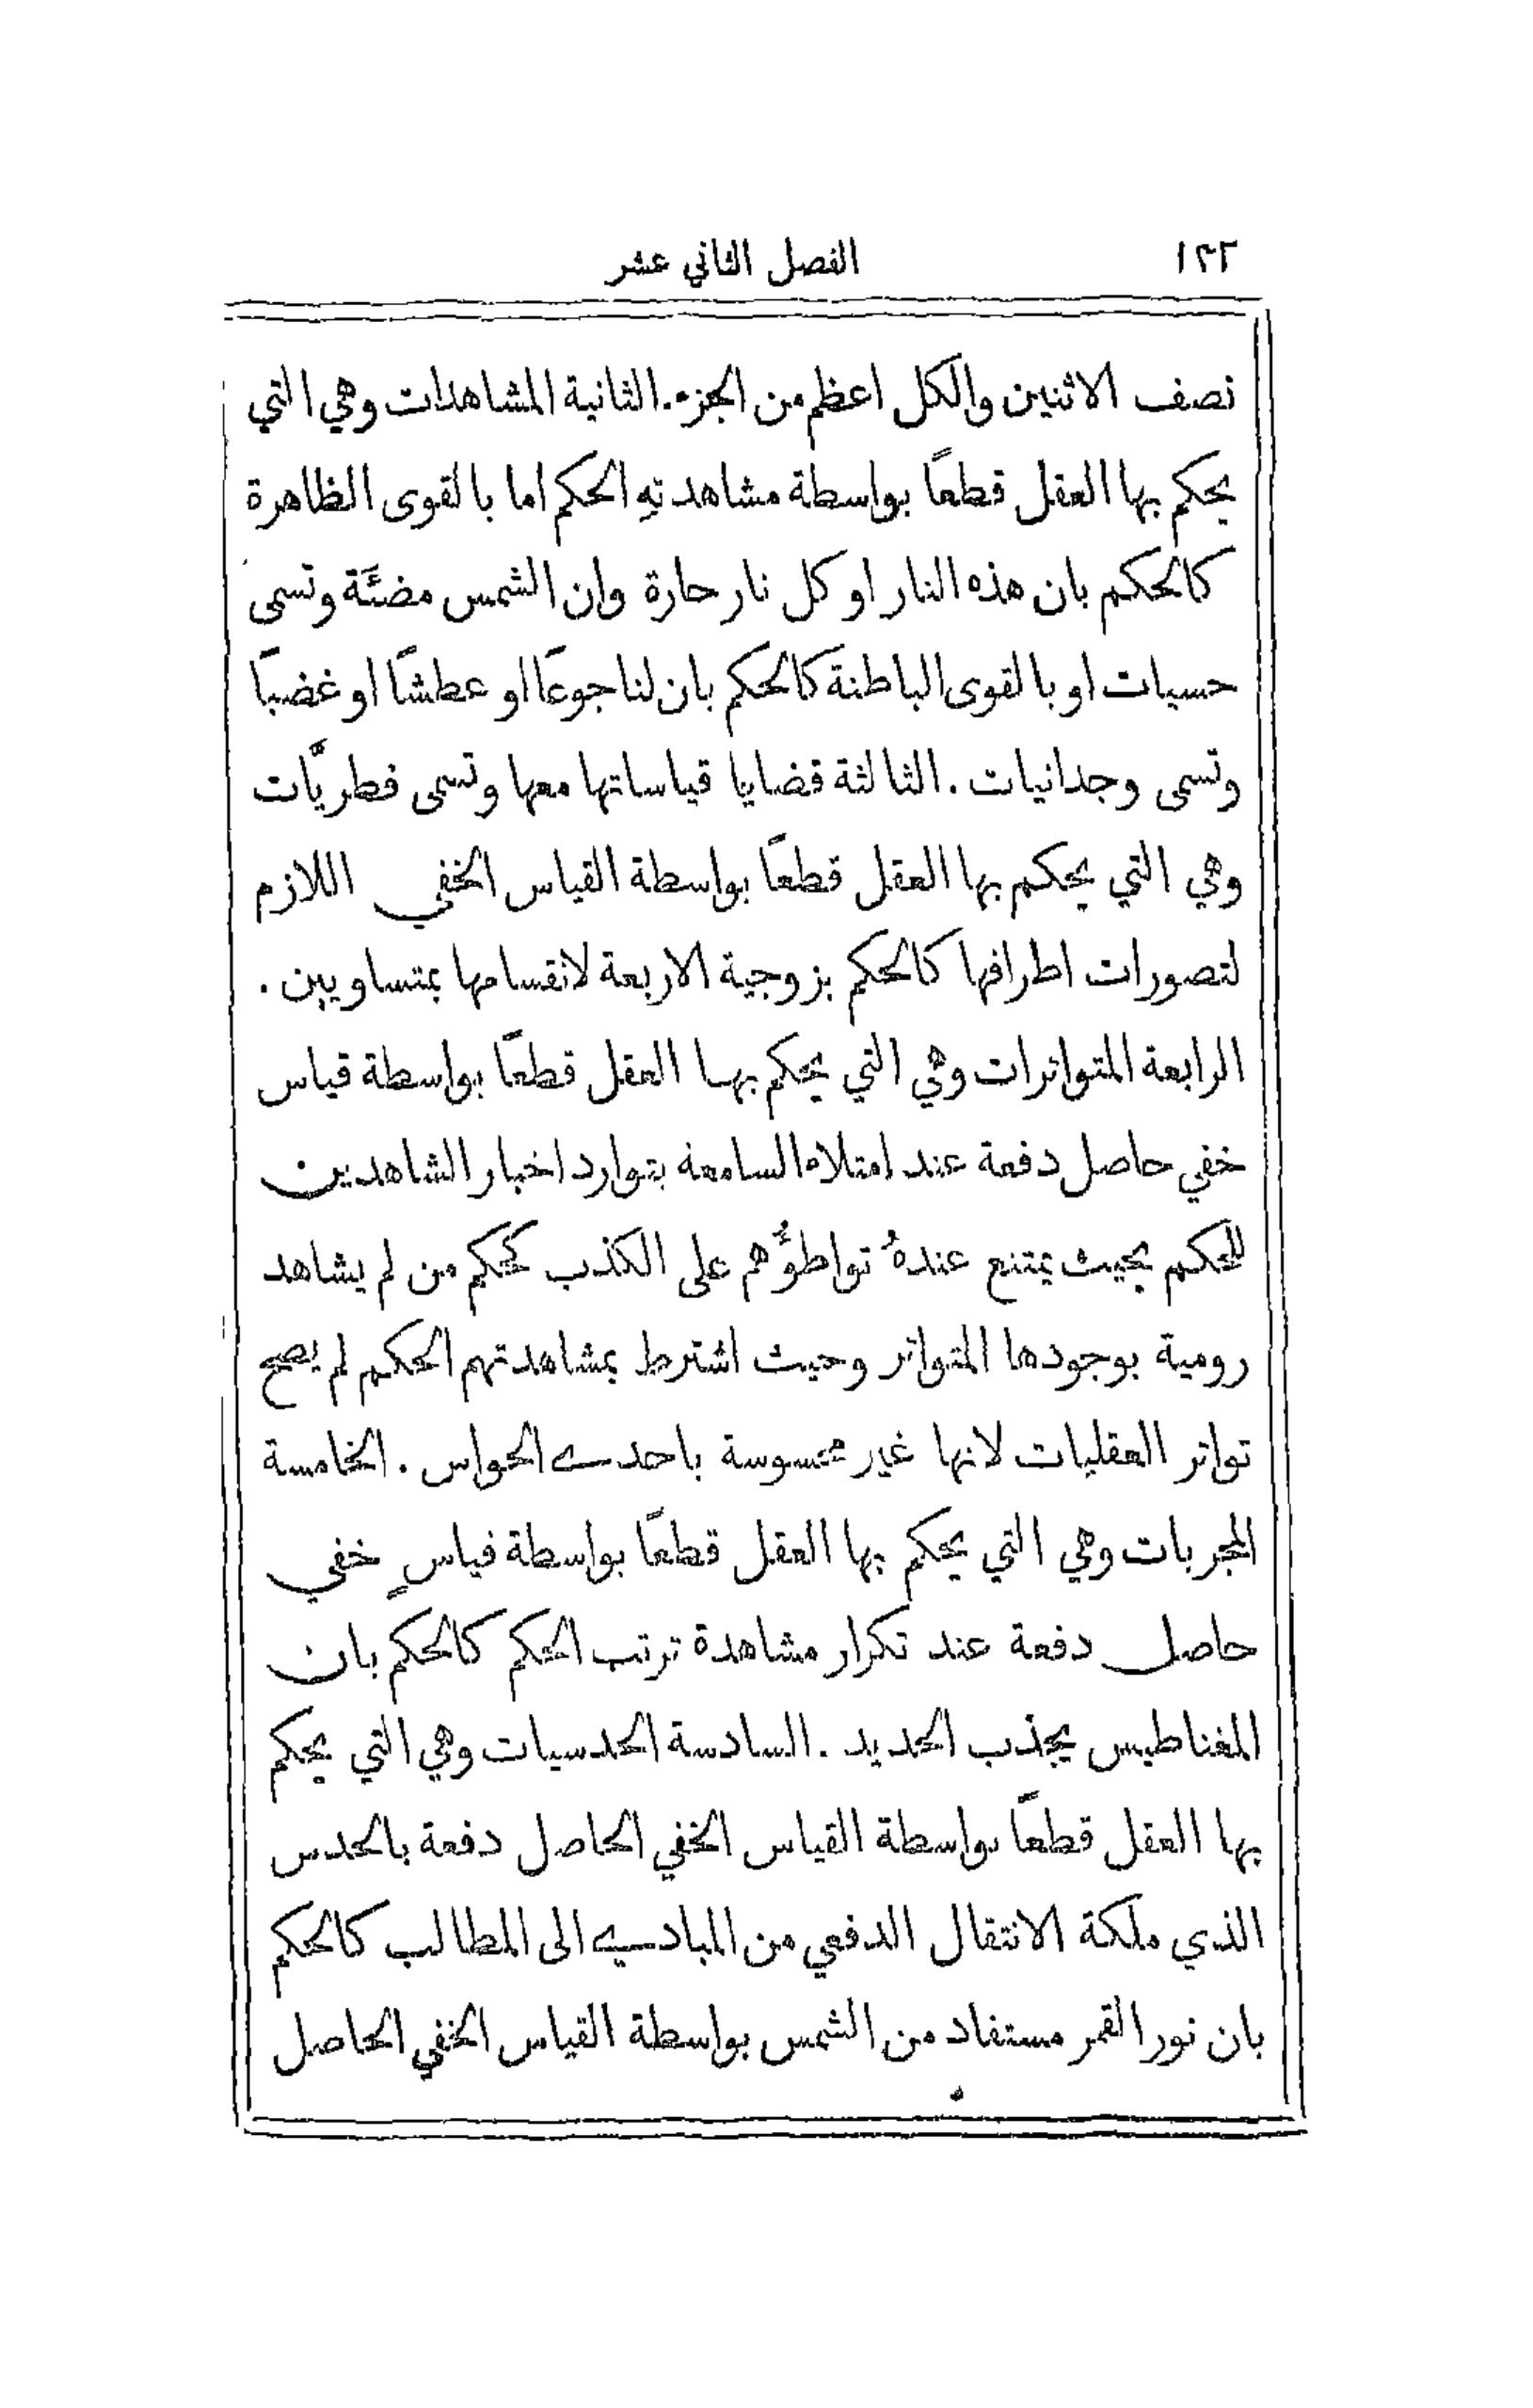 ١٣٢ الفصل الثاني عشر
نصف الاثنين والكل اعظم من الجزء. الثانية المشاهدات وهي التي
يحكم بها العقل قطعًا بواسطة مشاهدتهِ الحكم اما بالقوى الظاهرة
كالحكم بان هذه النار او كل نار حارة وان الشمس مضئَة وتسمى
حسيات او بالقوى الباطنة كالحكم بان لنا جوعًا او عطشًا او غضبًا
وتسمى وجدانيات . الثالثة قضايا قياساتها معها وتسمى فطريَّات
وهي التي يحكم بها العقل قطعًا بواسطة القياس الخفي اللازم
لتصورات اطرافها كالحكم بزوجية الاربعة لانقسامها بمتساويين .
الرابعة المتواترات وهي التي يحكم بها العقل قطعًا بواسطة قياس
خفي حاصل دفعة عند امتلاء السامعة بتوارد اخبار الشاهدين
للحكم بحيث يمتنع عندهُ تواطوُّهم على الكذب كحكم من لم يشاهد
رومية بوجودها المتواتر وحيث اشترط بمشاهدتهم الحكم لم يصح
تواتر العقليات لانها غير محسوسة باحدى الحواس . الخامسة
المجربات وهي التي يحكم بها العقل قطعًا بواسطة قياسٍ خفي
حاصل دفعة عند تكرار مشاهدة ترتب الحكم كالحكم بان
المغناطيس يجذب الحديد . السادسة الحدسيات وهي التي يحكم
بها العقل قطعًا بواسطة القياس الخفي الحاصل دفعة بالحدس
الذي ملكة الانتقال الدفعي من المبادي الى المطالب كالحكم
بان نور القمر مستفاد من الشمس بواسطة القياس الخفي الحاصل